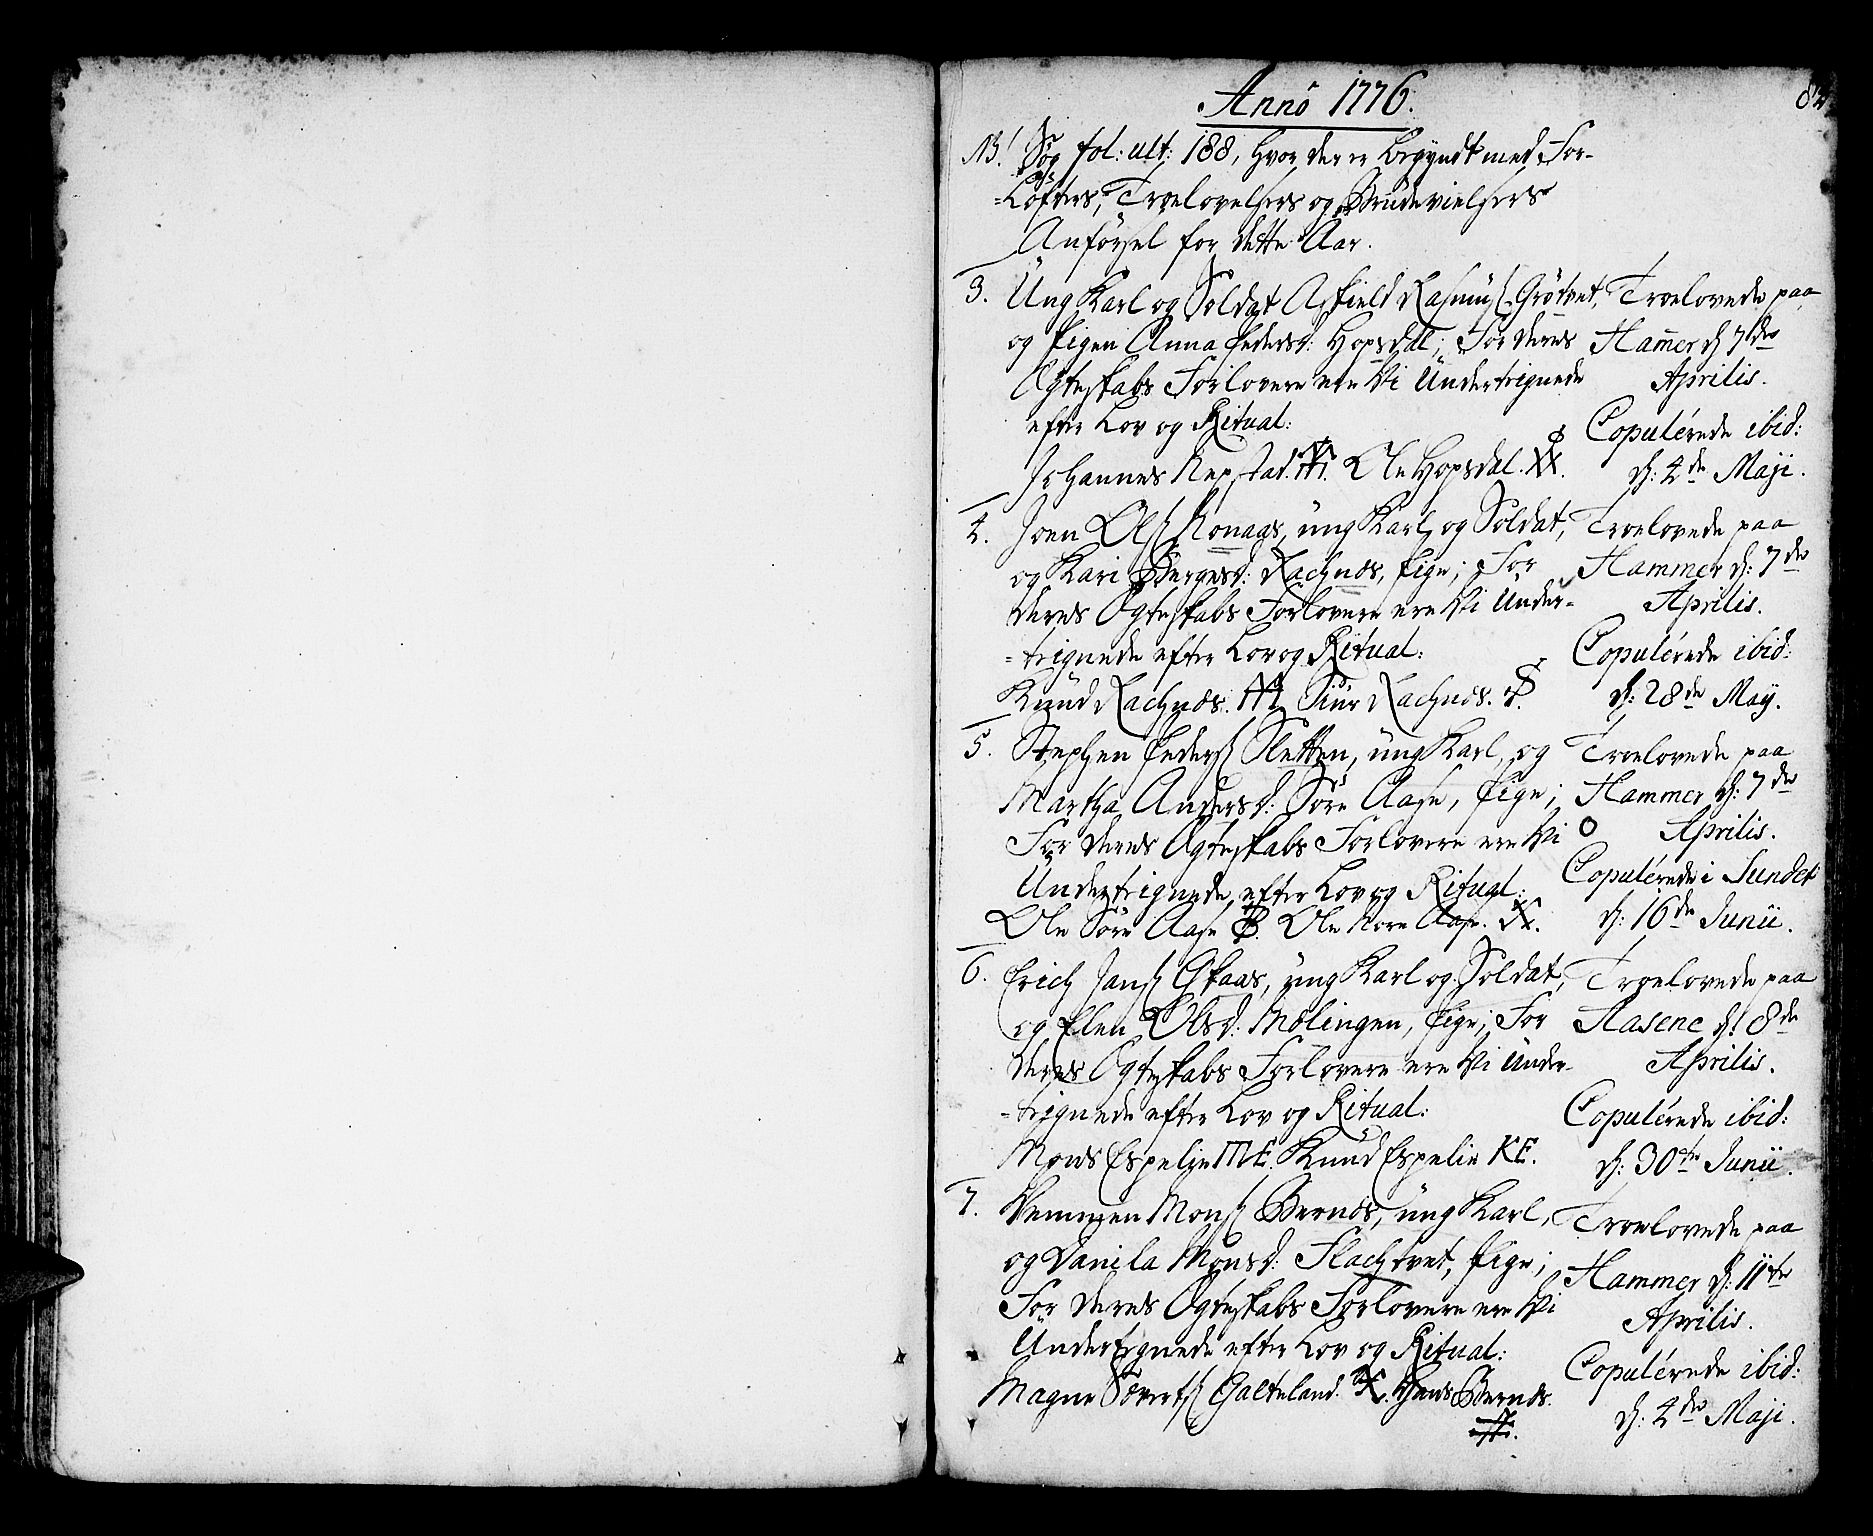 Annô 1776.
82
NB! Søg fol: ult: 188, hvor der er begyndt med For-
-Løfters, Troelovelsers og Brudevielsers
Anførsel for dette Aar.
3. Ung Karl og Soldat Askield Rasmusß. Grøtvet,
og Pigen Anna Pedersd: Hopsdal; For deres
Ægteskabs Forlovere ere Vi Undertegnede
efter Lov og Ritual:
Johannes Repstad. Ole Hopsdal.
Troelovede paa
Hamer d. 7de
Aprilis.
Copulérede ibid:
d: 4de Maji.
4. Joen Olsß Konaas, ung Karl og Soldat,
og Kari Bergesd: Rachnes, Pige; For
deres Ægteskabs Forlovere ere Vi Under-
-tegnede efter Lov og Ritual:
Knud Rachnes. Siur Rachnes.
Troelovede paa
Hammer d: 7de
Aprilis.
Copulérede ibid:
d: 28de May.
5. Stephen Pedersß Sletten, ung Karl, og
Martha Andersd: Søre Aase, Pige;
For deres Ægteskabs Forlovere ere Vi
Undertegnede efter Lov og Ritual:
Ole Søre Aase Ole Nore Aase.
Troelovede paa
Hammer d: 7de
Aprilis.
Copulérede i Sundet
d: 16de Junii.
6. Erich Jansß Askaas, ung Karl og Soldat,
og Elen Olsd: Mølingen, Pige; For
deres Ægteskabs Forlovere ere Vi Under-
-tegnede efter Lov og Ritual:
Mons Espelje ME. Knud Espelie KE.
Troelovede paa
Aasene d: 8de
Aprilis.
Copulérede ibid:
d: 30te Junii.
7. Monsß Bernes, ung Karl,
og Danila Monsd: Flachtvet, Pige;
For deres Ægteskabs Forlovere ere Vi
Undertegnede efter Lov og Ritual:
Magne Galteland. Hans Bernes.
Troelovede paa
Hammer d: 11te
Aprilis.
Copulérede ibid:
d: 4de Maji.